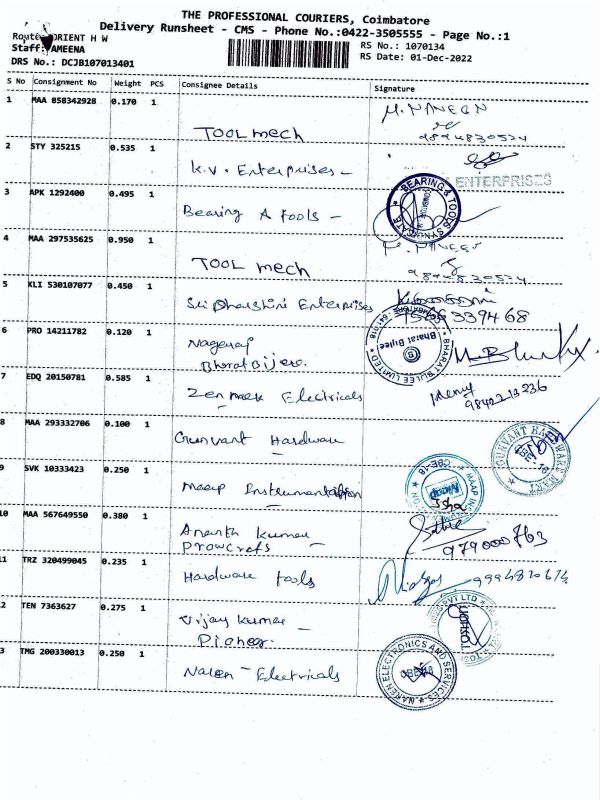 THE PROFESSIONAL COURIERS, Coimbatore
Delivery Runsheet - CMS - Phone No.:0422-3505555 - Page No.:1
Route: ORIENT H W
Staff: AMEENA
DRS No.: DCJB107013401
RS No.: 1070134
RS Date: 01-Dec-2022
S No Consignment No Weight PCS Consignee Details Signature
1 MAA 858342928 0.170 1 TOOL mech
2 STY 325215 0.535 1 K.V. Enterprises -
ENTERPRISES
3 APK 1292400 0.495 1 Bearing A Tools -
BEARING & TOOLS SYNDICATE
4 MAA 297535625 0.950 1 TOOL mech
5 KLI 530107077 0.450 1 Sri Dharshini Enterprises
6 PRO 14211782 0.120 1 Nagaraj
Bharat Bijlee.
BHARAT BIJLEE LIMITED
Bharat Bijlee
7 EDQ 20150781 0.585 1 Zenmark Electricals
9842213236
8 MAA 293332706 0.100 1 Gunvant Hardware
GUNVANT HARDWARE MART
9 SVK 10333423 0.250 1 Maap Instrumentation
CBE-18
Maap
10 MAA 567649550 0.380 1 Ananth Kumar
Prowcrafts -
979000763
11 TRZ 320499045 0.235 1 Hardware tools
12 TEN 7363627 0.275 1 Vijay Kumar -
Pioneer.
PVT LTD
13 TMG 200330013 0.250 1 Naren - Electricals
NAREN ELECTRONICS AND SERVICES